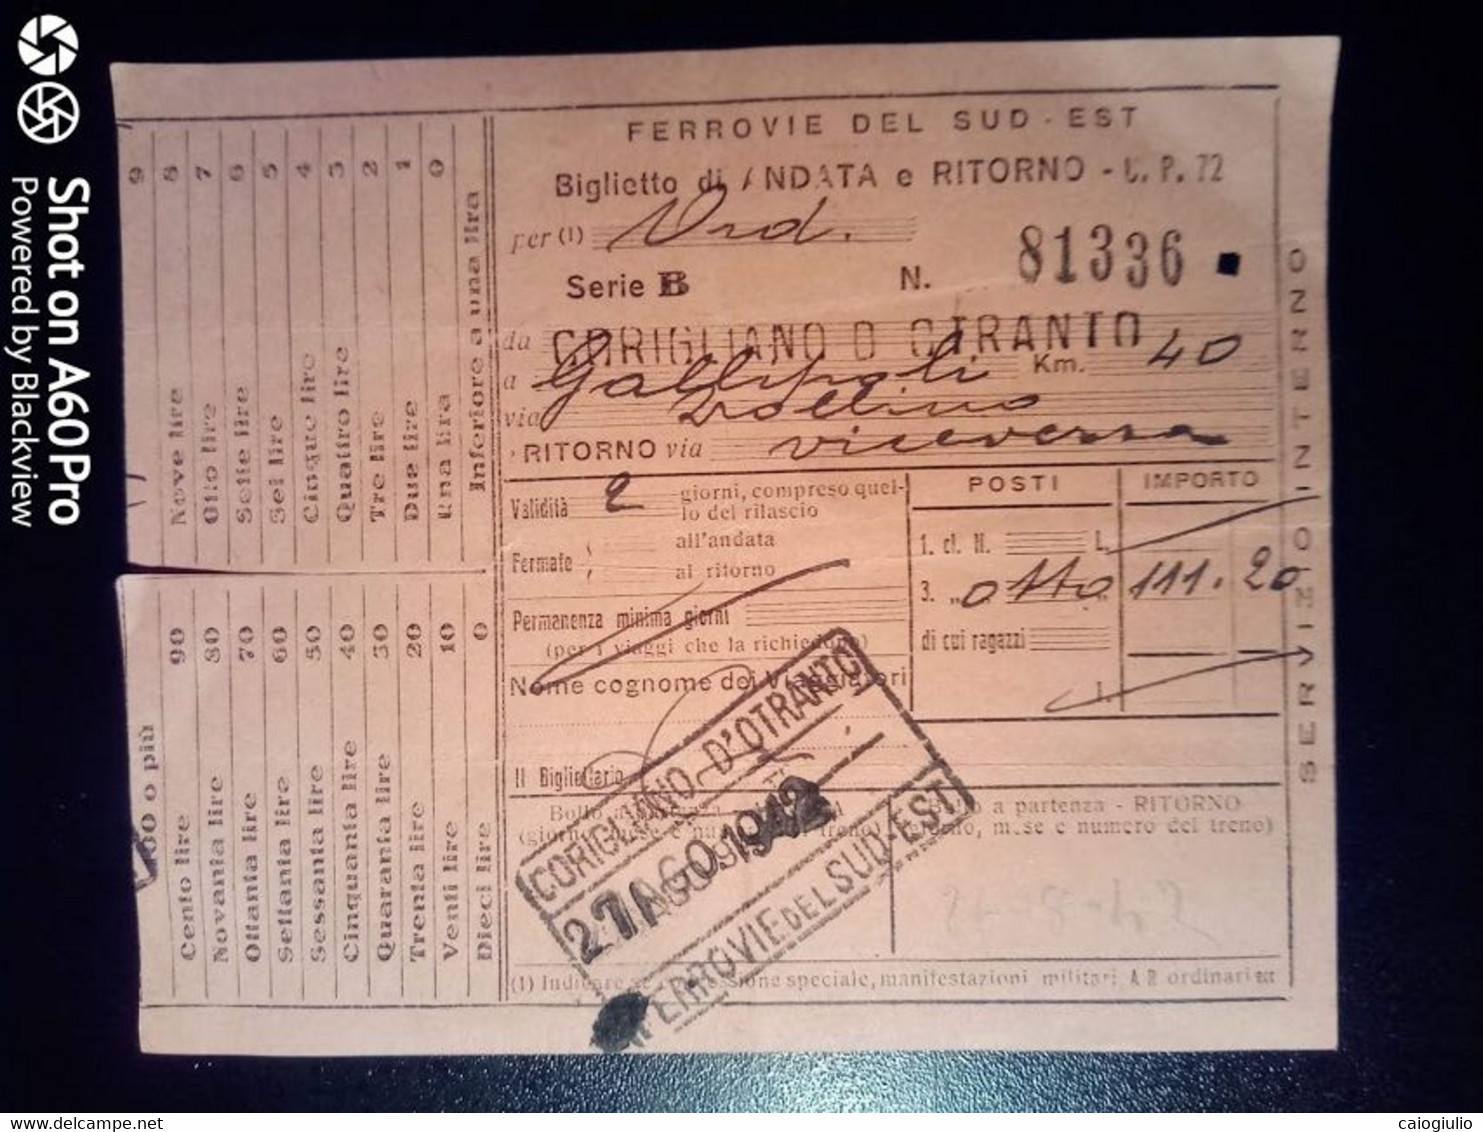 FERROVIE DEL SUD-EST
Biglietto di ANDATA e RITORNO - U. P. 72
per (1) Ord.
Serie B N. 81336
da CORIGLIANO D OTRANTO
a Gallipoli Km. 40
via Zollino
RITORNO via viceversa
Validità 2 giorni, compreso quel-
lo del rilascio
Fermate all'andata
al ritorno
Permanenza minima giorni
(per i viaggi che la richiedono)
Nome cognome dei Viaggiatori
Il Bigliettario
POSTI IMPORTO
1. cl. N. L.
3. „ otto „ 111.20
di cui ragazzi
L.
SERVIZIO INTERNO
Bollo a partenza - RITORNO
(giorno, mese e numero del treno) (giorno, mese e numero del treno)
CORIGLIANO D'OTRANTO
27 AGO 1942
FERROVIE DEL SUD-EST
(1) Indicare se concessione speciale, manifestazioni militari A R ordinari ect
9
8 Nove lire
7 Otto lire
6 Sette lire
5 Sei lire
4 Cinque lire
3 Quattro lire
2 Tre lire
1 Due lire
0 Una lira
Inferiore a una lira
100 o più
90 Cento lire
80 Novanta lire
70 Ottanta lire
60 Settanta lire
50 Sessanta lire
40 Cinquanta lire
30 Quaranta lire
20 Trenta lire
10 Venti lire
0 Dieci lire
Shot on A60Pro
Powered by Blackview
delcampe.net
caiogiulio